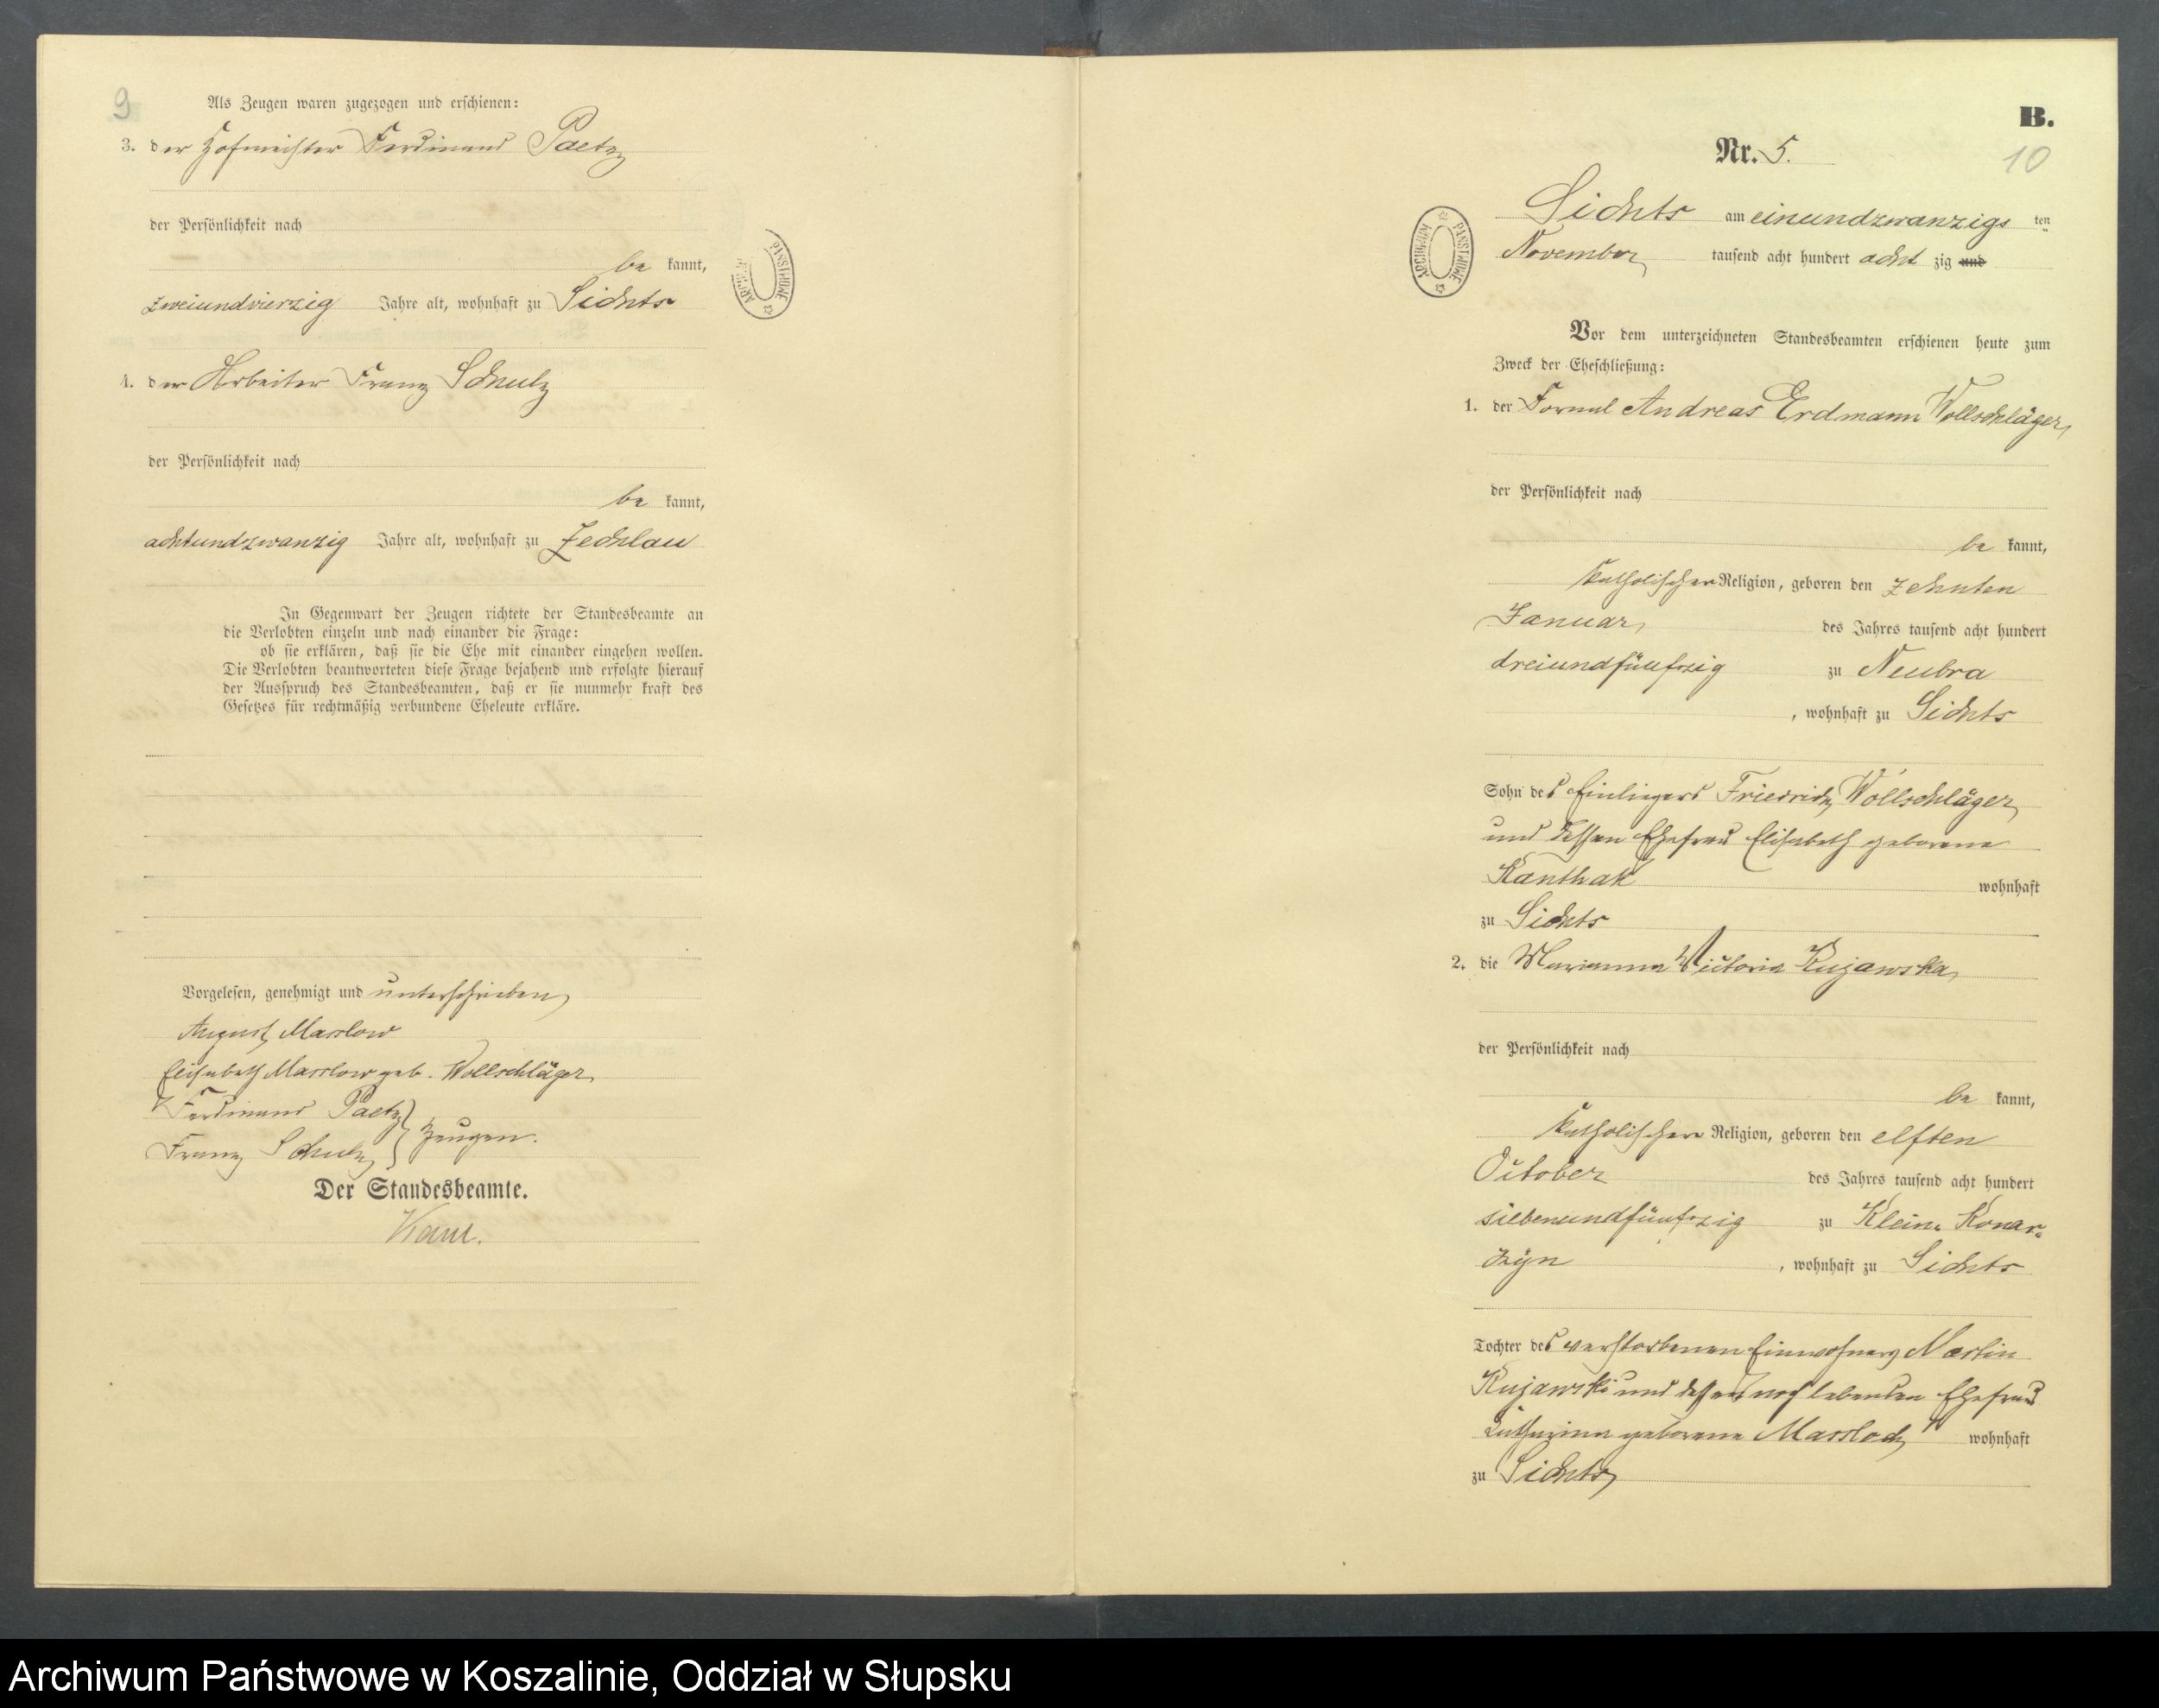 9
Als Zeugen waren zugezogen und erschienen:
3. der Hofmeister Ferdinand Paetz
der Persönlichkeit nach
be kannt,
zweiundvierzig Jahre alt, wohnhaft zu Sichts
4. der Arbeiter Franz Schulz
der Persönlichkeit nach
be kannt,
achtundzwanzig Jahre alt, wohnhaft zu Zechlau
In Gegenwart der Zeugen richtete der Standesbeamte an
die Verlobten einzeln und nach einander die Frage:
ob sie erklären, daß sie die Ehe mit einander eingehen wollen.
Die Verlobten beantworteten diese Frage bejahend und erfolgte hierauf
der Ausspruch des Standesbeamten, daß er sie nunmehr kraft des
Gesetzes für rechtmäßig verbundene Eheleute erkläre.
Vorgelesen, genehmigt und unterschrieben
August Masslow
Elisabeth Masslow geb. Wollschläger
Ferdinand Paetz
Franz Schulz } Zeugen.
Der Standesbeamte.
ARCHIWUM PAŃSTWOWE
B.
10
Nr. 5.
Sichts am einundzwanzigs ten
November tausend acht hundert acht zig und
ARCHIWUM PAŃSTWOWE
Vor dem unterzeichneten Standesbeamten erschienen heute zum
Zweck der Eheschließung:
1. der Fornal Andreas Erdmann Wollschläger,
der Persönlichkeit nach
be kannt,
katholischer Religion, geboren den zehnten
Januar des Jahres tausend acht hundert
dreiundfünfzig zu Neubra
, wohnhaft zu Sichts
Sohn des Einliegers Friedrich Wollschläger
und dessen Ehefrau Elisabeth geborene
Kanthak wohnhaft
zu Sichts
2. die Marianna Victoria Kujawska,
der Persönlichkeit nach
be kannt,
katholischer Religion, geboren den elften
October des Jahres tausend acht hundert
siebenundfünfzig zu Klein Konar-
zyn , wohnhaft zu Sichts
Tochter des verstorbenen Einwohners Martin
Kujawski und dessen noch lebenden Ehefrau
Catharina geborene Massloch wohnhaft
zu Sichts
Archiwum Państwowe w Koszalinie, Oddział w Słupsku